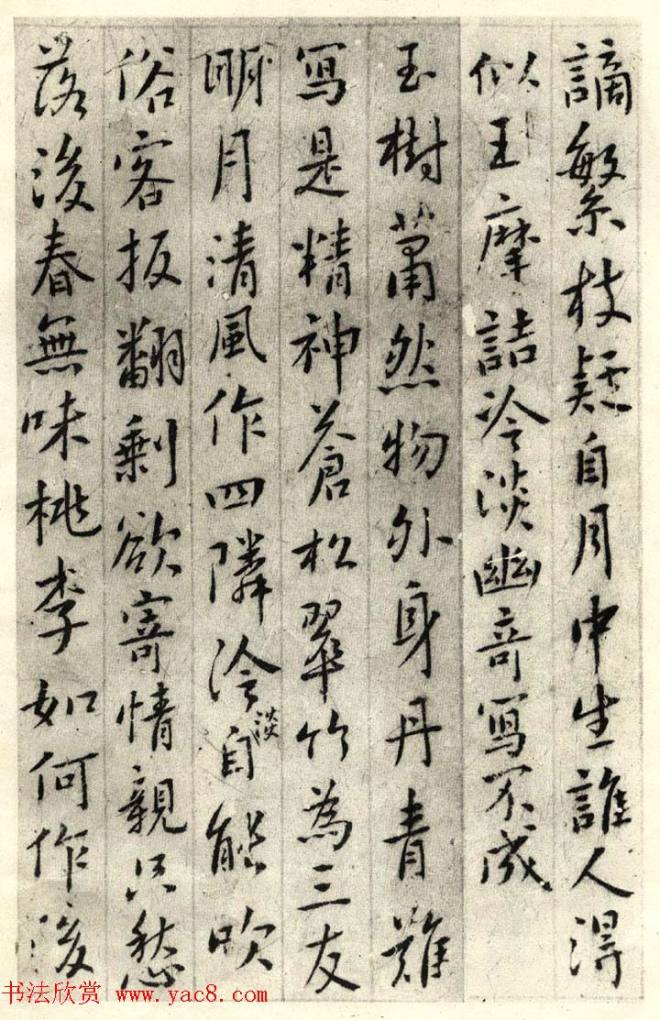 謫繁枝疑自月中生誰人得
似王摩詰冷淡幽奇寫不成
玉樹蕭然物外身丹青難
寫是精神蒼松翠竹為三友
明月清風作四隣冷淡自能吹
俗客扳翻剩欲寄情親只愁
落後春無味桃李如何作後
书法欣赏 www.yac8.com